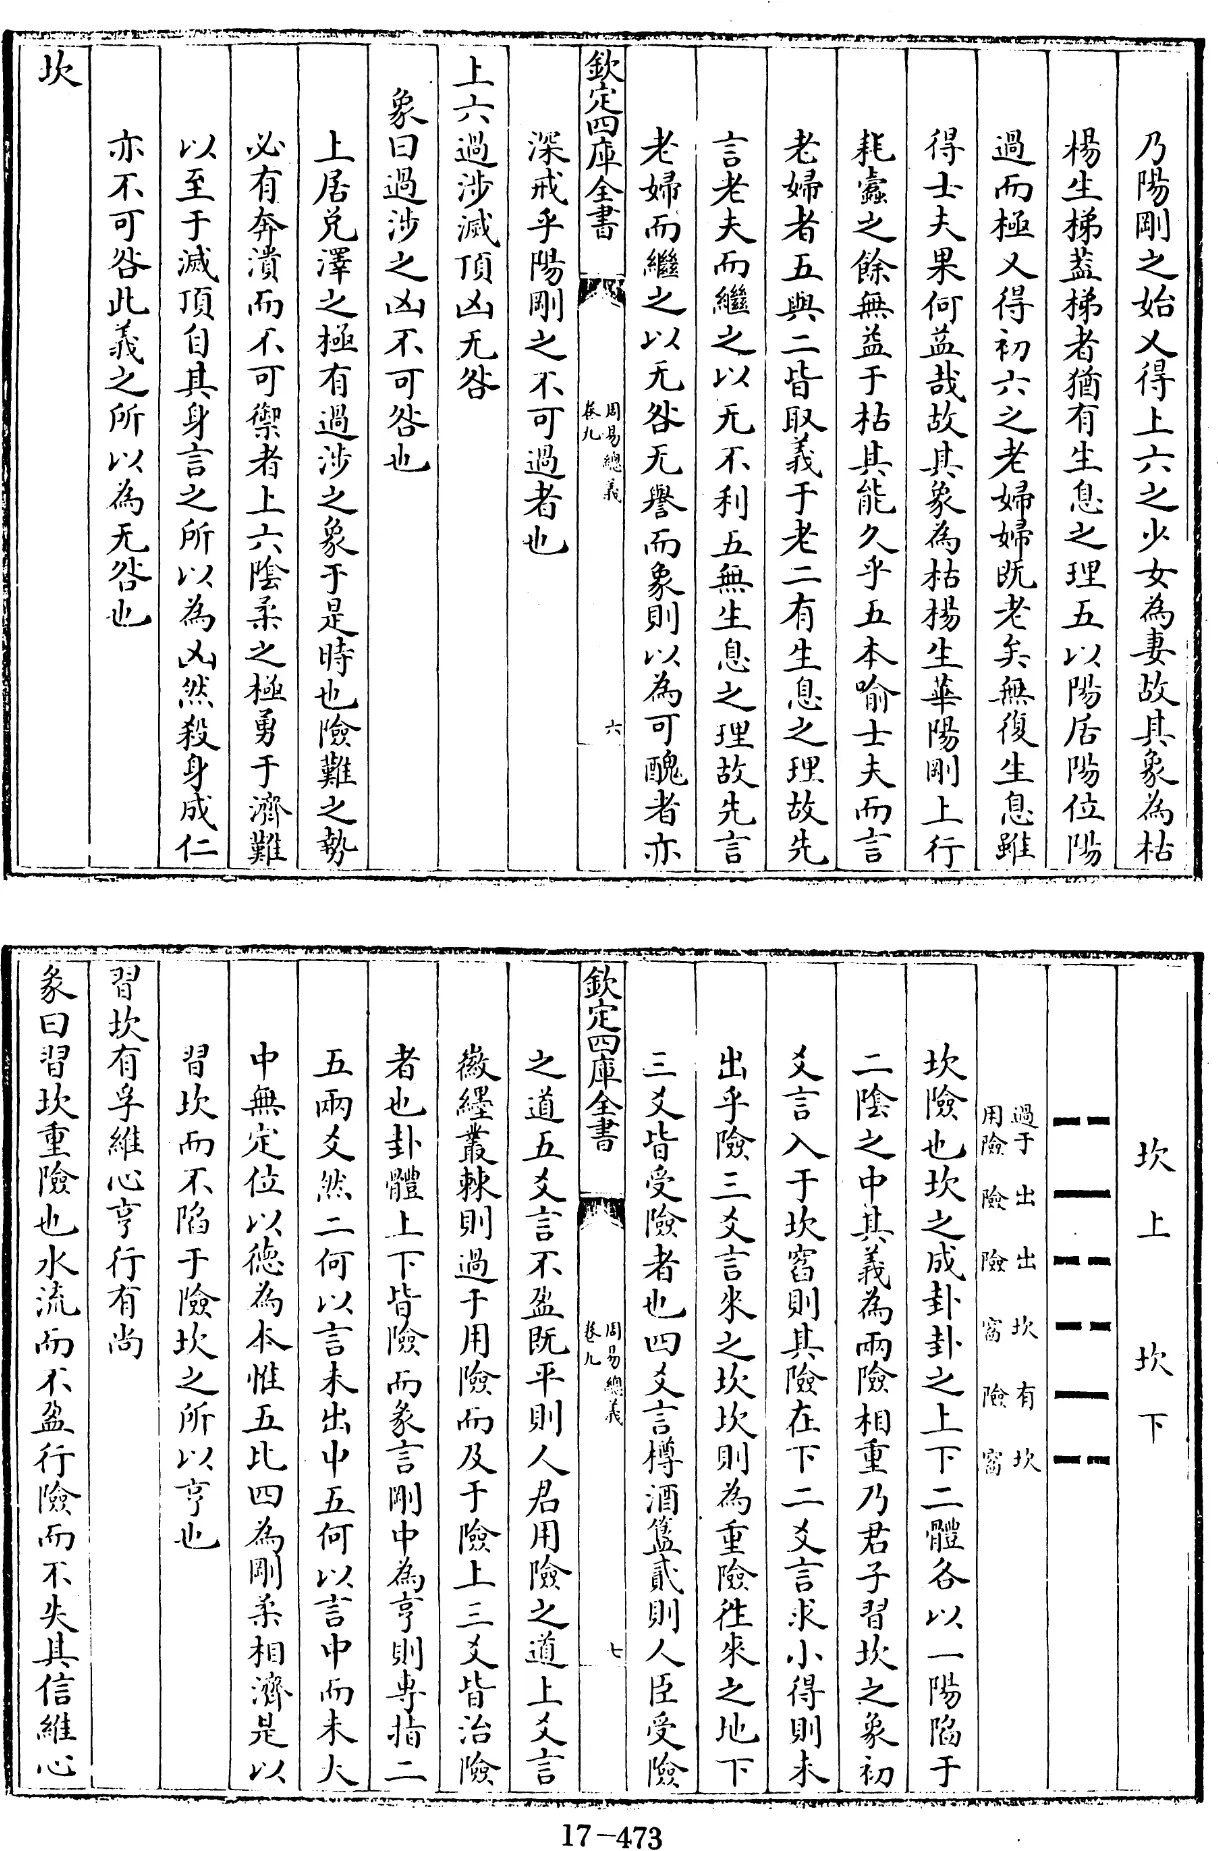 乃陽剛之始又得上六之少女為妻故其象為枯
楊生梯蓋梯者猶有生息之理五以陽居陽位陽
過而極又得初六之老婦婦既老矣無復生息雖
得士夫果何益哉故其象為枯楊生華陽剛上行
耗蠹之餘無益于枯其能久乎五本喻士夫而言
老婦者五與二皆取義于老二有生息之理故先
言老夫而繼之以无不利五無生息之理故先言
老婦而繼之以无咎无譽而象則以為可醜者亦
欽定四庫全書
周易總義
卷九
六
深戒乎陽剛之不可過者也
上六過涉滅頂凶无咎
象曰過涉之凶不可咎也
上居兌澤之極有過涉之象于是時也險難之勢
必有奔潰而不可禦者上六陰柔之極勇于濟難
以至于滅頂自其身言之所以為凶然殺身成仁
亦不可咎此義之所以為无咎也
坎
坎上 坎下
過于用險
出險
出險
坎窞
有險
坎窞
坎險也坎之成卦卦之上下二體各以一陽陷于
二陰之中其義為兩險相重乃君子習坎之象初
爻言入于坎窞則其險在下二爻言求小得則未
出乎險三爻言來之坎坎則為重險往來之地下
三爻皆受險者也四爻言樽酒簋貳則人臣受險
欽定四庫全書
周易總義
卷九
七
之道五爻言不盈既平則人君用險之道上爻言
徽纆叢棘則過于用險而及于險上三爻皆治險
者也卦體上下皆險而彖言剛中為亨則專指二
五兩爻然二何以言未出中五何以言中而未大
中無定位以德為本惟五比四為剛柔相濟是以
習坎而不陷于險坎之所以亨也
習坎有孚維心亨行有尚
彖曰習坎重險也水流而不盈行險而不失其信維心
17-473